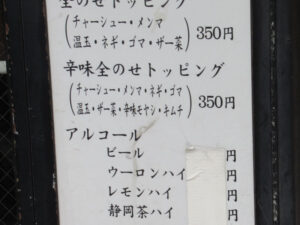 全のせトッピング
(チャーシュー・メンマ
温玉・ネギ・ゴマ・ザー菜) 350円
辛味全のせトッピング
(チャーシュー・メンマ・ネギ・ゴマ
温玉・ザー菜・辛味モヤシ・キムチ) 350円
アルコール
ビール 円
ウーロンハイ 円
レモンハイ 円
静岡茶ハイ 円